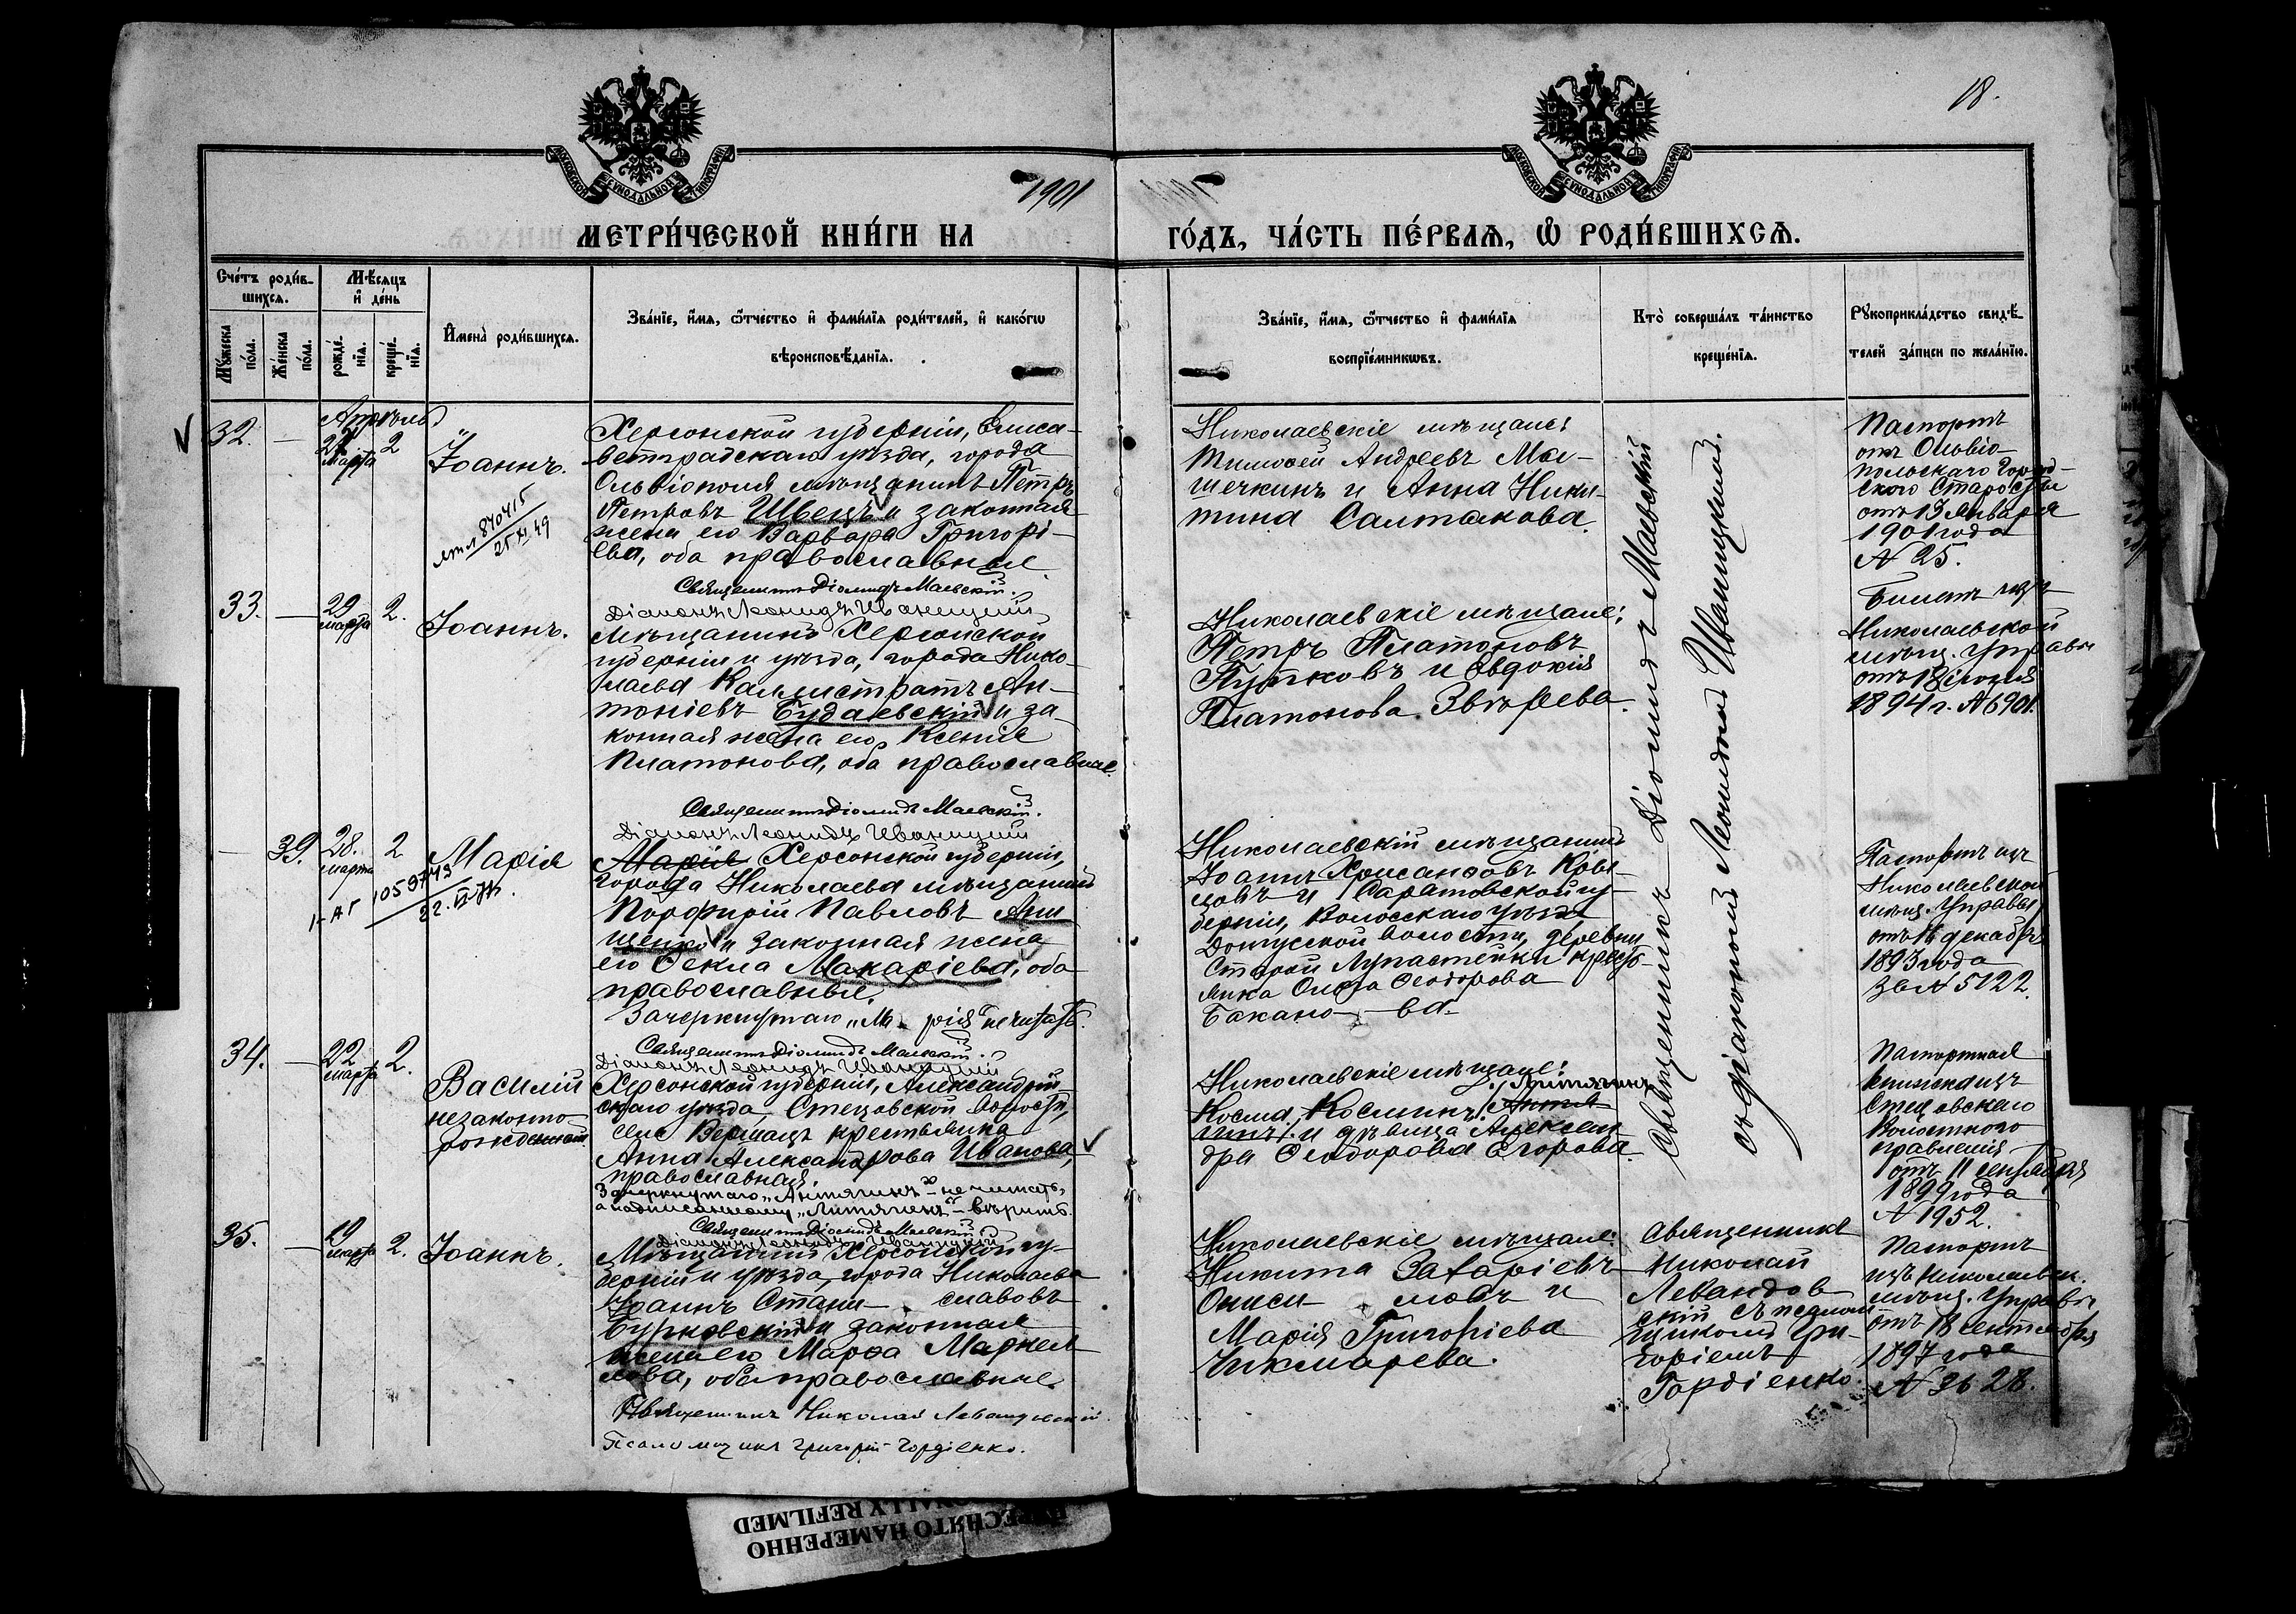 18.
МОСКОВСКОЙ СѴНОДАЛЬНОЙ ТИПОГРАФІИ
МОСКОВСКОЙ СѴНОДАЛЬНОЙ ТИПОГРАФІИ
1901
МЕТРИ́ЧЕСКОЙ КНИ́ГИ НА
ГО́ДЪ, ЧА́СТЬ ПЕ́РВАѦ, Ѡ РОДИ́ВШИХСѦ.
Сче́тъ роди́в-
шихсѧ.
Мѣ́сѧцъ
и де́нь
Мꙋ́жеска
по́ла.
Же́нска
по́ла.
рожде́-
нїѧ.
креще́-
нїѧ.
И́мена роди́вшихсѧ.
Зва́нїе, и́мѧ, ѻ́тчество и фами́лїѧ роди́телей, и како́гѡ
вѣроисповѣ́данїѧ.
Зва́нїе, и́мѧ, ѻ́тчество и фами́лїѧ
воспрїе́мникѡвъ.
Кто̀ соверша́лъ та́инство
креще́нїѧ.
Рꙋкоприкла́дство свидѣ́-
телей за́писи по жела́нїю.
Апрѣль
32. — 27 марта 2 Іоаннъ.
Херсонской губерніи, Елиса-
ветградскаго уѣзда, города
Ольвіополя мѣщанинъ Петръ
Петровъ Швецъ и законная
жена его Варвара Григорі-
ева, оба православные.
Священникъ Діомидъ Маевскій.
Діаконъ Леонидъ Иваницкій
840415
25 XI 49
Николаевскіе мѣщане:
Тимофей Андреевъ Ма-
шечкинъ и Анна Ники-
тина Салтакова.
Паспортъ
отъ Ольвіо-
польскаго Город-
ского Старосты
отъ 13 Января
1901 года
№ 25.
33. — 29 марта 2. Іоаннъ.
Мѣщанинъ Херсонской
губерніи и уѣзда, города Нико-
лаева Каллистратъ Ан-
тоніевъ Будаевскій и за-
конная жена его Ксенія
Платонова, оба православные.
Священникъ Діомидъ Маевскій.
Діаконъ Леонидъ Иваницкій
Николаевскіе мѣщане:
Петръ Платоновъ
Путковъ и Евдокія
Платонова Звѣрева.
Билетъ изъ
Николаевской
мѣщ. Управы
отъ 18 іюля
1894 г. № 6901.
— 39. 28. марта 2 Марія
1059743
Марія Херсонской губерніи,
города Николаева мѣщанинъ
Порфирій Павловъ Они-
щенко и законная жена
его Ѳекла Макаріева, оба
православные.
Зачеркнутаго „Марія" не читать.
Священникъ Діомидъ Маевскій.
Діаконъ Леонидъ Иваницкій
Николаевскій мѣщанинъ
Іоаннъ Хрисанфовъ
и Саратовской гу-
берніи, уѣзда
волости, деревни
Старой кресть-
янка Ольга Ѳеодорова
Бакано- ва.
Паспортъ изъ
Николаевской
мѣщ. Управы
отъ декабря
1893 года
за № 5122.
Священникъ Діомидъ Маевскій
съ діакономъ Леонидомъ Иваницкимъ.
34. — 22 марта 2.
Василій
незаконно-
рожденный
Херсонской губерніи, Александрій-
скаго уѣзда, Стецовской волости,
села Вершацъ крестьянка
Анна Александрова Иванова,
православная.
Зачеркнутаго „Антягинъ" — не читать,
а надписанному „Литягинъ" — вѣрить.
Священникъ Діомидъ Маевскій
Діаконъ Леонидъ Иваницкій
Николаевскіе мѣщане:
Литягинъ
Косма Косминъ
и дѣвица Алексан-
дра Ѳеодорова Егорова.
Паспортная
книжка изъ
Стецовскаго
Волостного
правленія
отъ 11 сентября
1899 года
№ 1952.
35. — 19 марта 2. Іоаннъ.
Мѣщанинъ Херсонской гу-
берніи и уѣзда, города Николаева
Іоаннъ Стани- славовъ
Бурковскій и законная
жена его Марѳа Маркел-
лова, оба православные.
Священникъ Николай Левандовскій.
Псаломщикъ Григорій Гордіенко.
Николаевскіе мѣщане:
Никита Захаріевъ
Ониси- мовъ и
Марія Григоріева
Чикмарева.
Священникъ
Николай
Левандов-
скій съ псалом-
щикомъ Гри-
горіемъ
Гордіенко.
Паспортъ
изъ Николаевск.
мѣщ. Управы
отъ 18 сентября
1897 года
№ 3628.
ПЕРЕСНЯТО НАМЕРЕННО
REFILMED